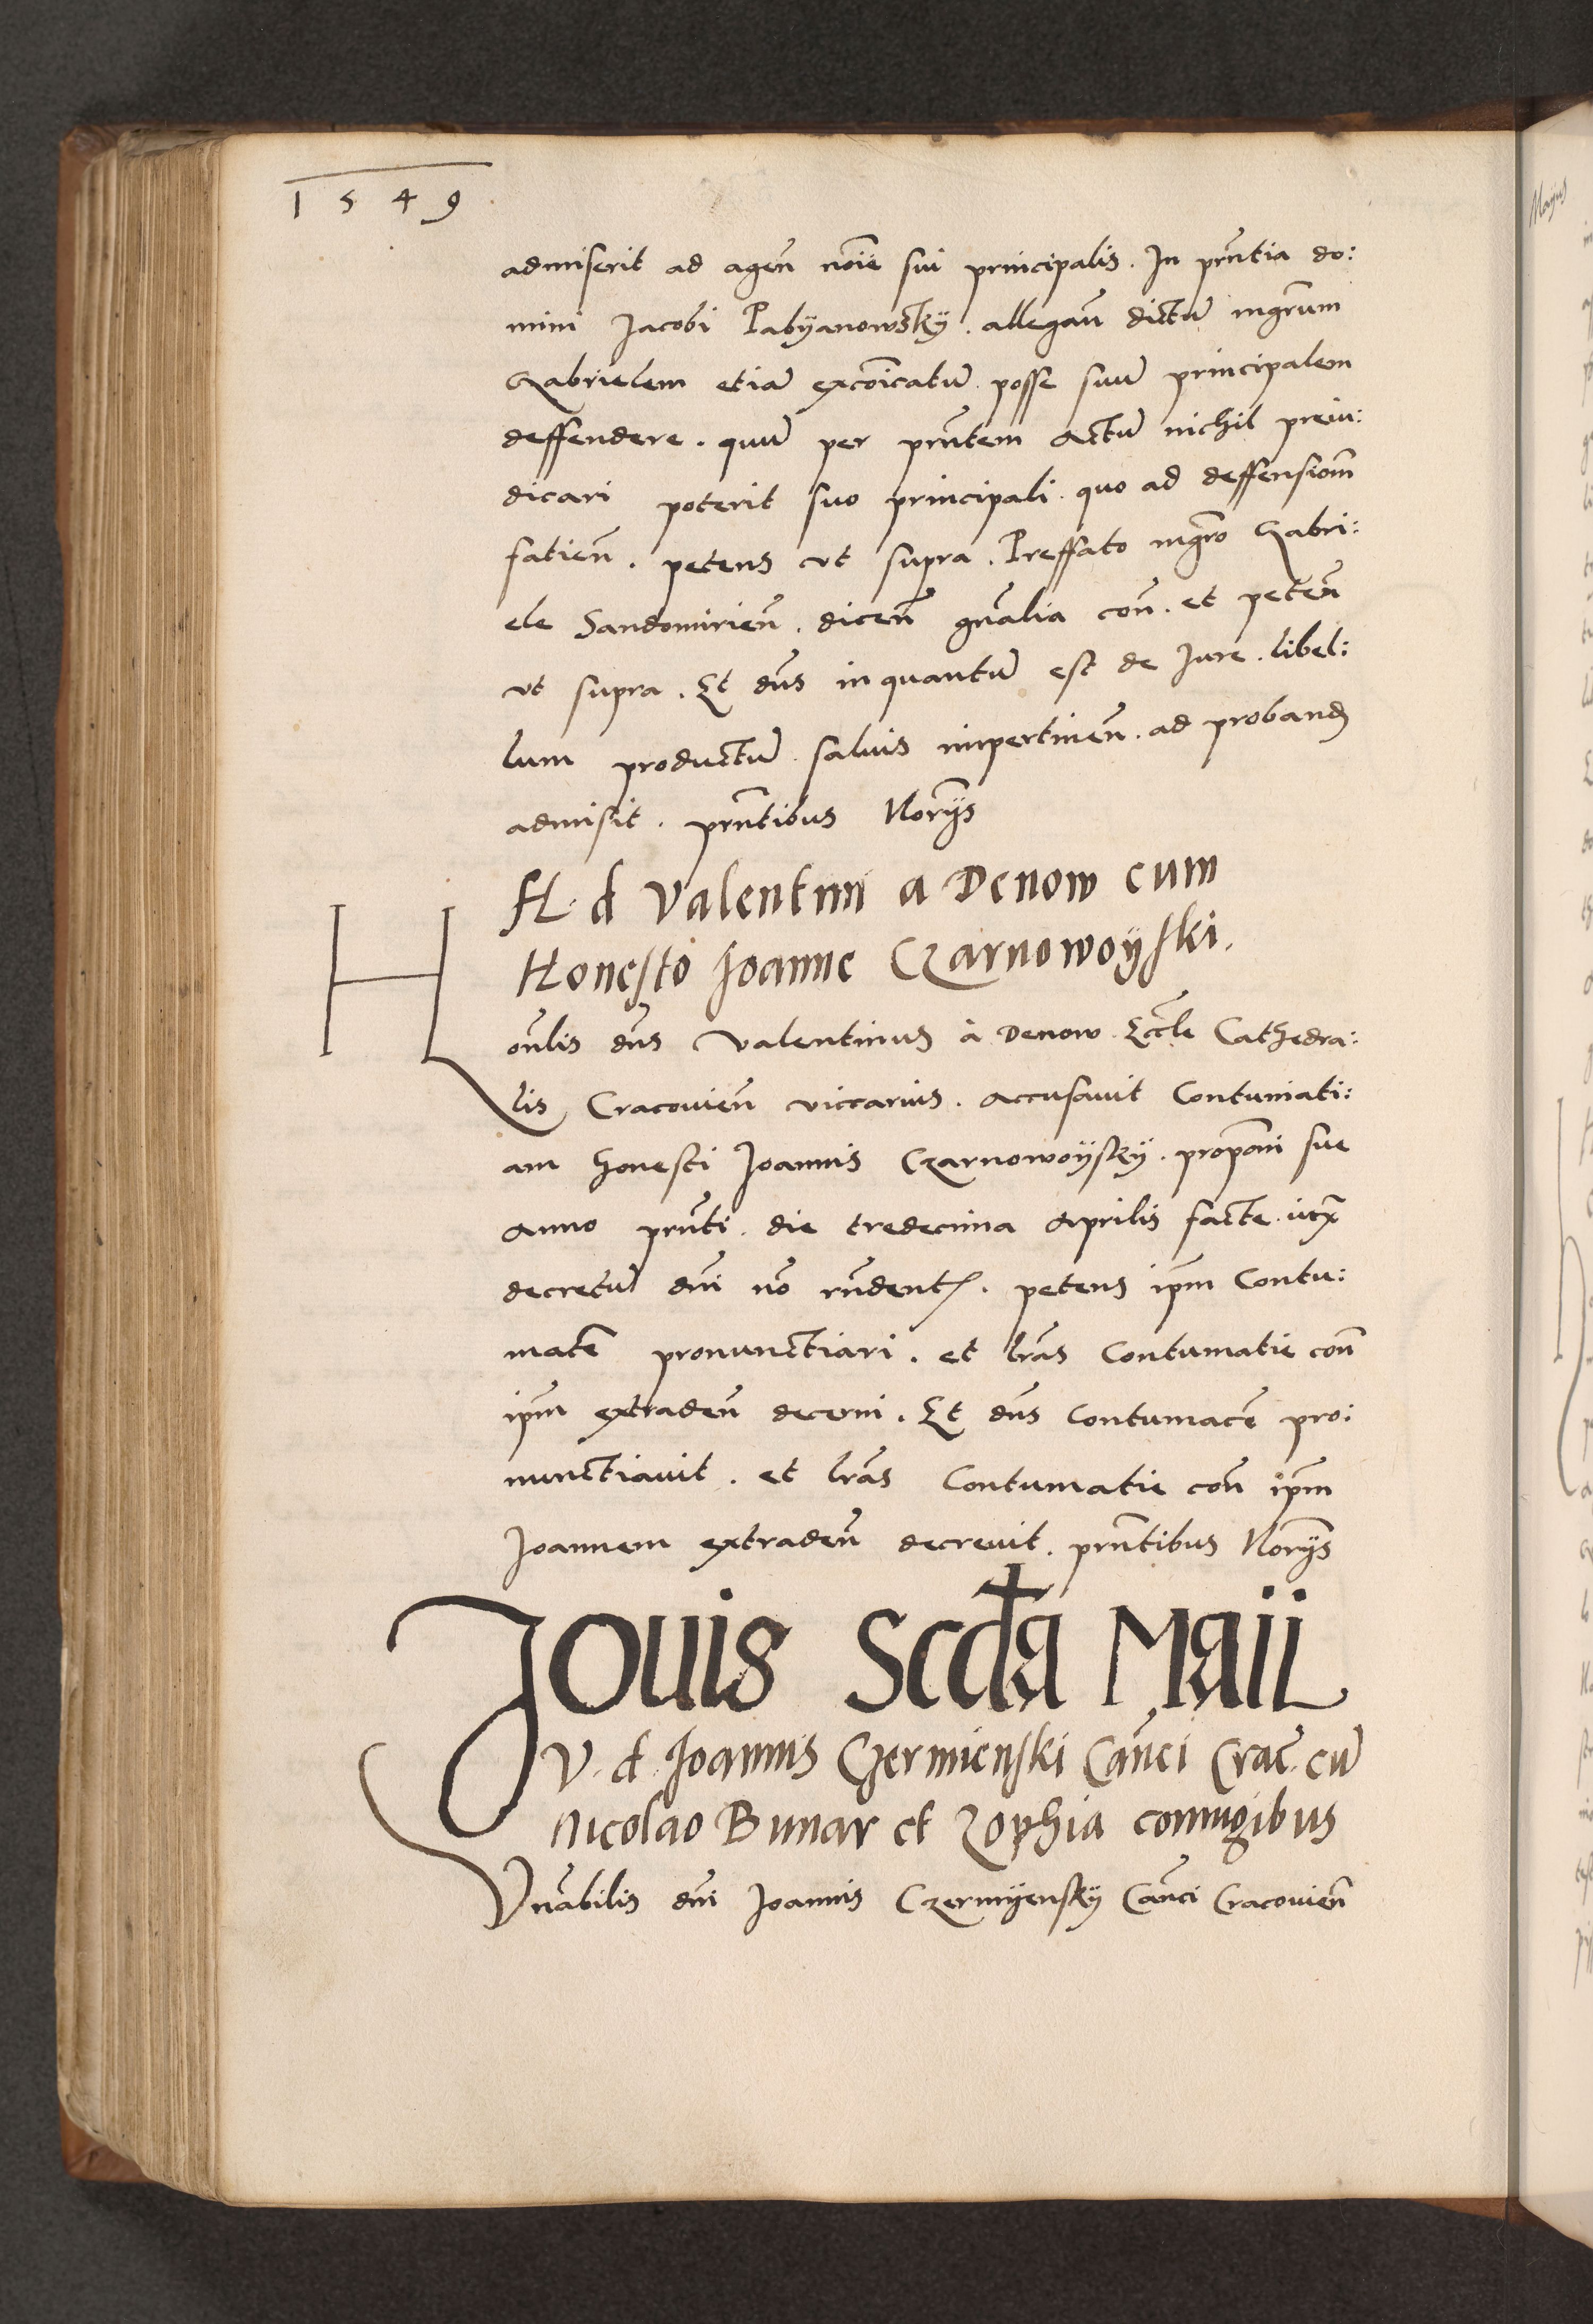 1549
admiserit ad agen̄ noīe sui principalis. In prn̄tia do:
mini Jacobi Pabyanowsky. allegan̄ dictu͞ mgrm̄
Gabrielem etia͞ exco͞icatu͞ posse suu͞ principalem
deffendere. quu͞ per prn̄tem actu͞ nichil preiu:
dicari poterit suo principali. quo ad deffensiom̄
fatien̄. petens ut supra. Preffato mgr̄o Gabri:
ele Sandomirien̄. dicen̄ gn̄alia con̄. et peten̄
ut supra. Et dn̄s in quantu͞ est de Jure. libel:
lum productu͞ salvis impertinen̄. ad proband
admisit. prn̄tibus Norijs
H. d Valentini a Denow cum
Honesto Joanne Czarnowoyski.
Hon̄lis dn̄s Valentinus à Denow Eccl̄e Cathedra:
lis Cracovien̄ viccarius. accusavit Contumati:
am honesti Joannis Czarnowoysky. propo͞ni sue
anno prn̄ti. die tredecima Aprilis facte. iux
decretu͞ dn̄i no͞ rn̄dent. petens ipm̄ Contu:
mace͞ pronunctiari. et lr̄as Contumatie con̄
ipm̄ extraden̄ decerni. Et dn̄s Contumace͞ pro:
nunctiavit. et lr̄as Contumatie con̄ ipm̄
Joannem extraden̄ decrevit. prn̄tibus Norijs
Jovis Scda Maii
V. d. Joannis Czermienski Can̄ci Crac̄. cu͞
Nicolao Bunar et Zophia coniugibus
Vn̄abilis dn̄i Joannis Czermyensky Can̄ci Cracovien̄
Mayus